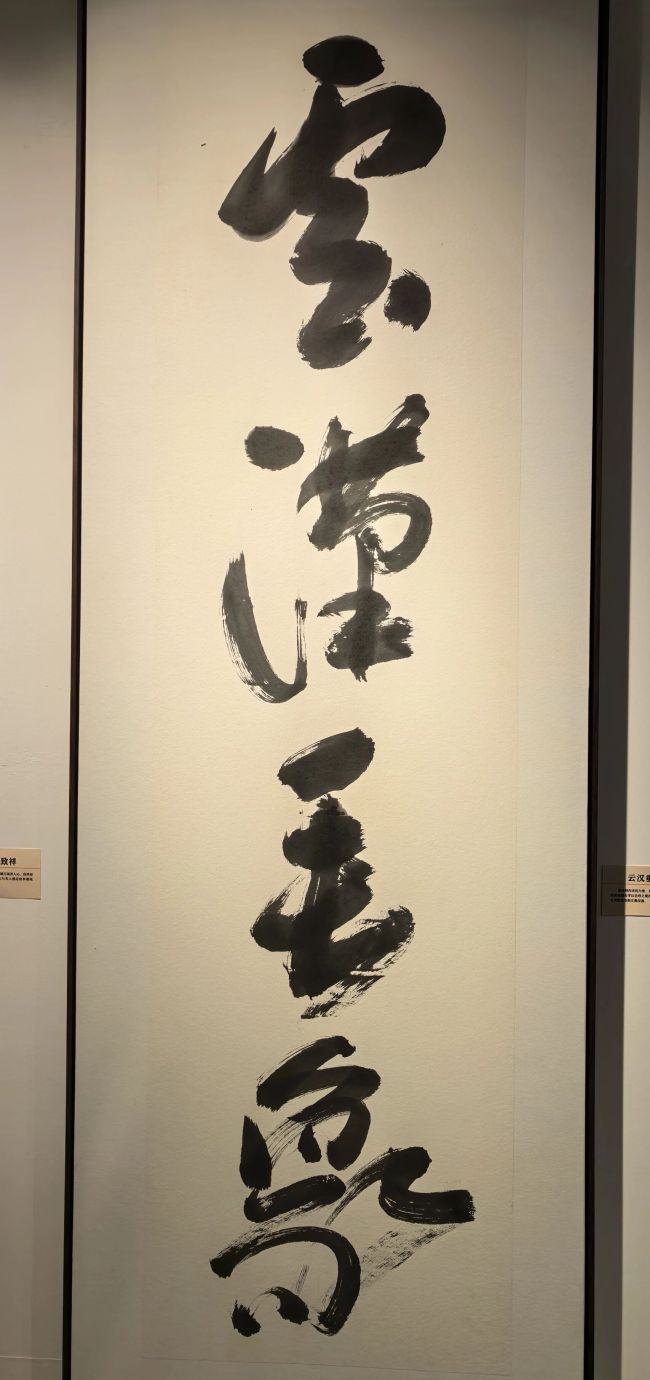 雲漢垂象
致祥
云汉